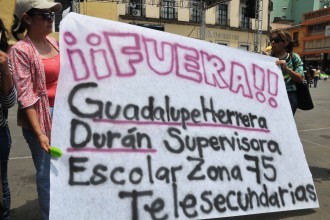 ¡¡FUERA!!
Guadalupe Herrera
Durán Supervisora
Escolar Zona 75
Telesecundarias